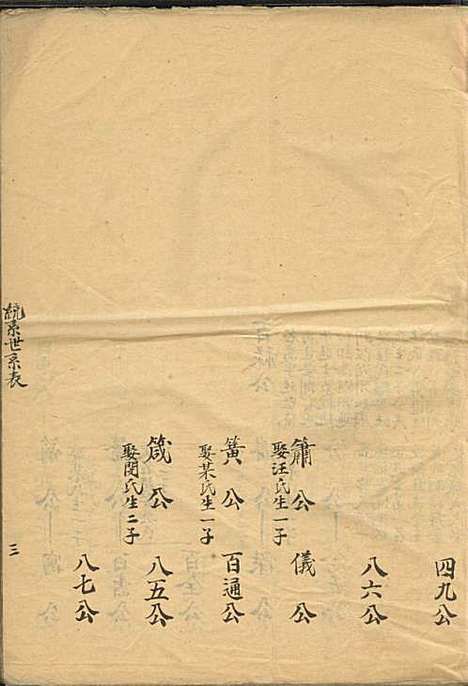 四九公
八六公
簫公
娶汪氏生一子
儀公
簧公
娶某氏生一子
百通公
箴公
娶閔氏生二子
八五公
八七公
統系世系表
三